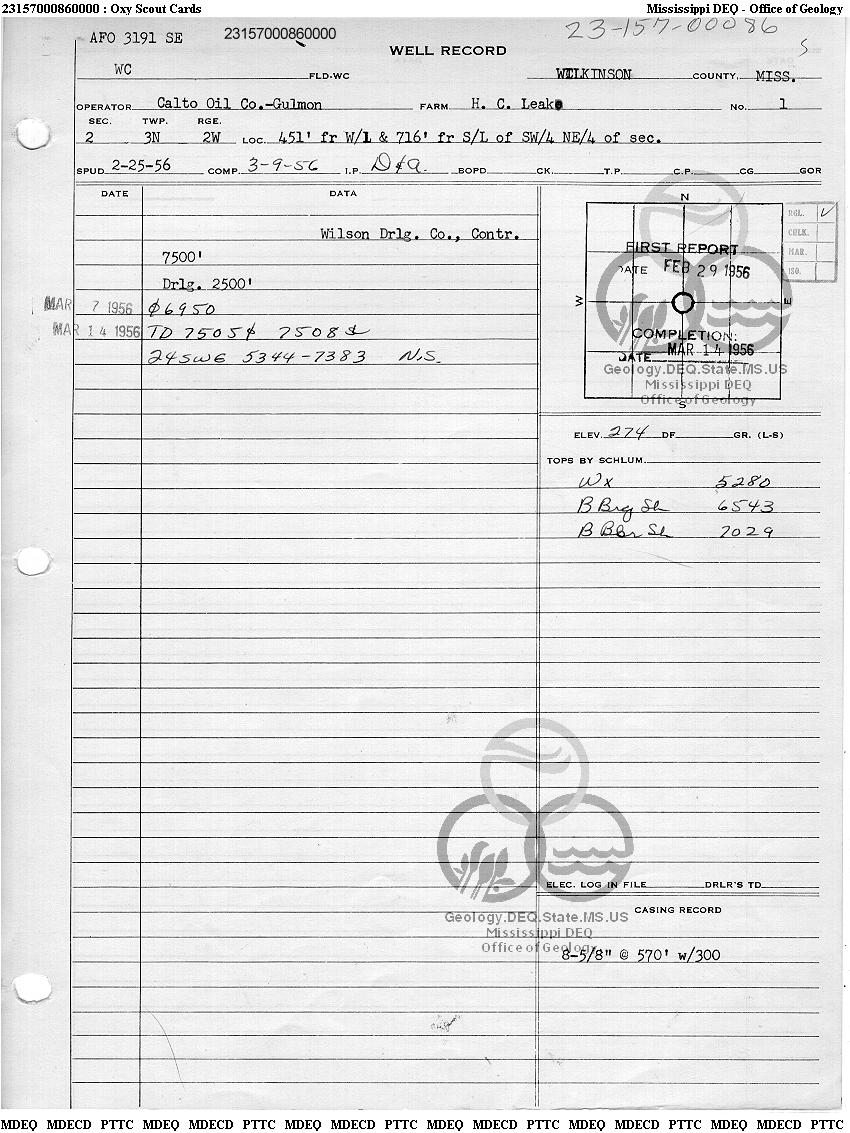 23157000860000 : Oxy Scout Cards Mississippi DEQ - Office of Geology
AFO 3191 SE 23157000860000 23-157-00086
WELL RECORD S
WC FLD-WC WILKINSON COUNTY, MISS.
OPERATOR Calto Oil Co.-Gulmon FARM H. C. Leake No. 1
SEC. TWP. RGE.
2 3N 2W LOC. 451' fr W/L & 716' fr S/L of SW/4 NE/4 of sec.
SPUD 2-25-56 COMP. 3-9-56 I.P. D&A. BOPD CK. T.P. C.P. CG GOR
DATE DATA
Wilson Drlg. Co., Contr.
7500'
Drlg. 2500'
MAR 7 1956 6950
MAR 14 1956 TD 7505 7508
24 SWC 5344-7383 N.S.
N
W E
S
FIRST REPORT
DATE FEB 29 1956
COMPLETION:
DATE MAR 14 1956
RGL. ✓
CHLK.
MAR.
ISO.
Geology.DEQ.State.MS.US
Mississippi DEQ
Office of Geology
ELEV. 274 DF GR. (L-S)
TOPS BY SCHLUM.
Wx 5280
B Brg Sh 6543
B Bbr Sh 7029
ELEC. LOG IN FILE DRLR'S TD
CASING RECORD
Geology.DEQ.State.MS.US
Mississippi DEQ
Office of Geology
8-5/8" @ 570' w/300
MDEQ MDECD PTTC MDEQ MDECD PTTC MDEQ MDECD PTTC MDEQ MDECD PTTC MDEQ MDECD PTTC MDEQ MDECD PTTC